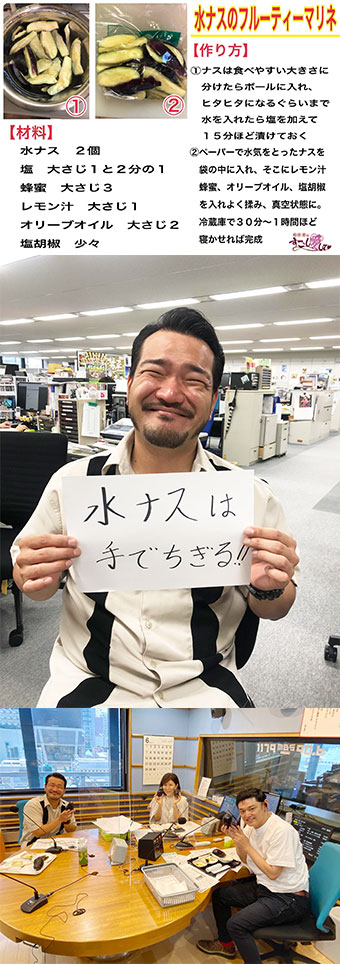 水ナスのフルーティーマリネ
①
②
【材料】
水ナス　２個
塩　大さじ１と２分の１
蜂蜜　大さじ３
レモン汁　大さじ１
オリーブオイル　大さじ２
塩胡椒　少々
【作り方】
①ナスは食べやすい大きさに
分けたらボールに入れ、
ヒタヒタになるぐらいまで
水を入れたら塩を加えて
１５分ほど漬けておく
②ペーパーで水気をとったナスを
袋の中に入れ、そこにレモン汁
蜂蜜、オリーブオイル、塩胡椒
を入れよく揉み、真空状態に。
冷蔵庫で３０分～１時間ほど
寝かせれば完成
水ナスは
手でちぎる!!
6